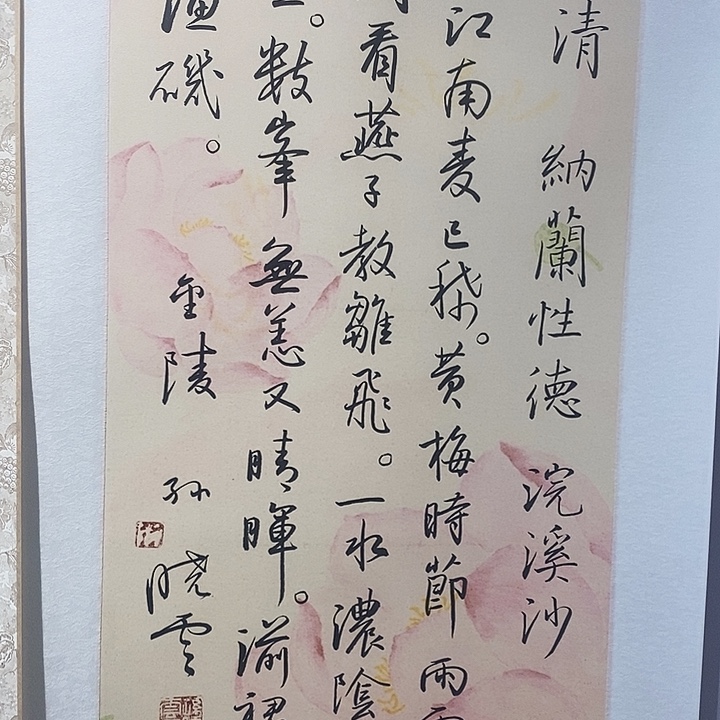 清 納蘭性德 浣溪沙
江南麦已稀。黄梅時節雨
看燕子教雛飛。一水濃陰
。數峯無恙又晴暉。湔裙
漁磯。 金陵 孙晓雲